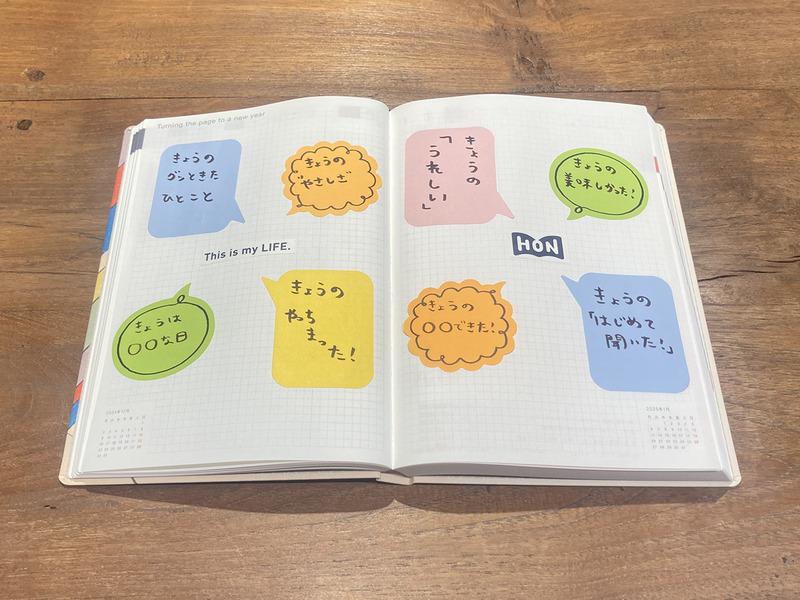 Turning the page to a new year
きょうの
グンときた
ひとこと
きょうの
やさしさ
This is my LIFE.
きょうは
○○な日
きょうの
やっち
まった！
きょうの
「うれしい」
きょうの
美味しかった！
HON
きょうの
○○できた！
きょうの
「はじめて
聞いた！」
2024年12月
2025年1月